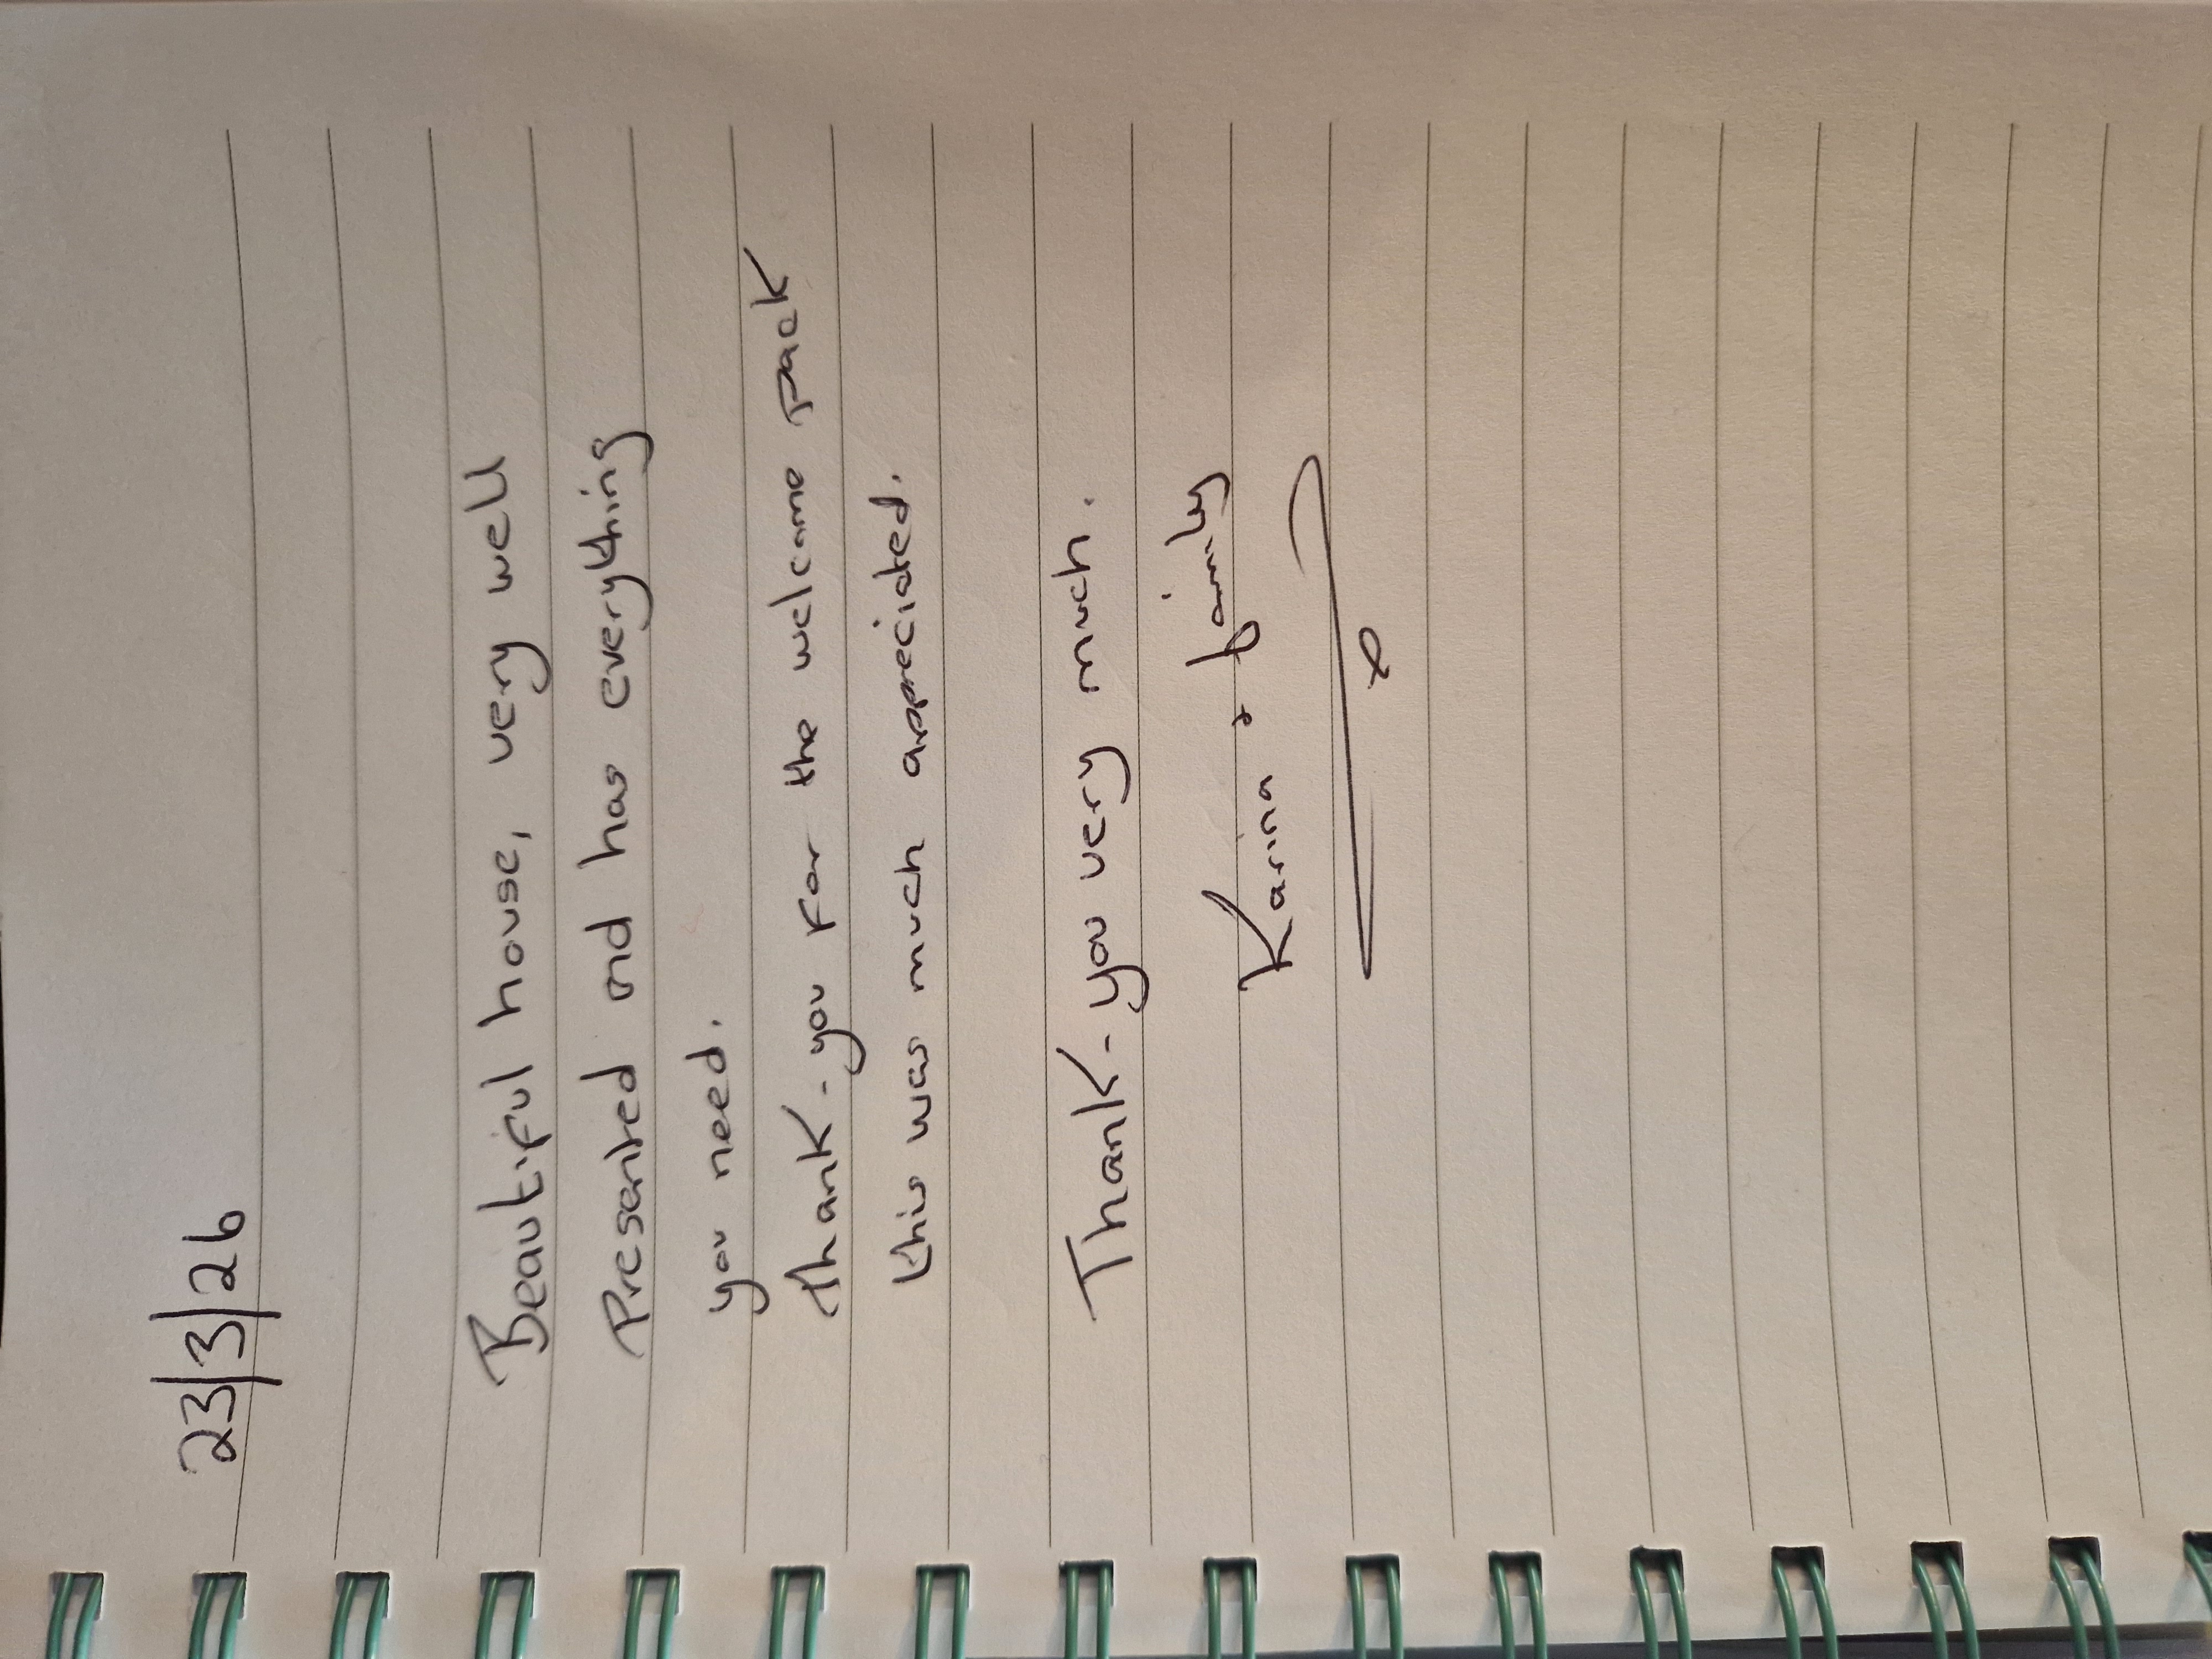 23/3/26
Beautiful house, very well
Presented and has everything
you need.
Thank-you for the welcome pack
this was much appreciated.
Thank-you very much.
Karina & family
x